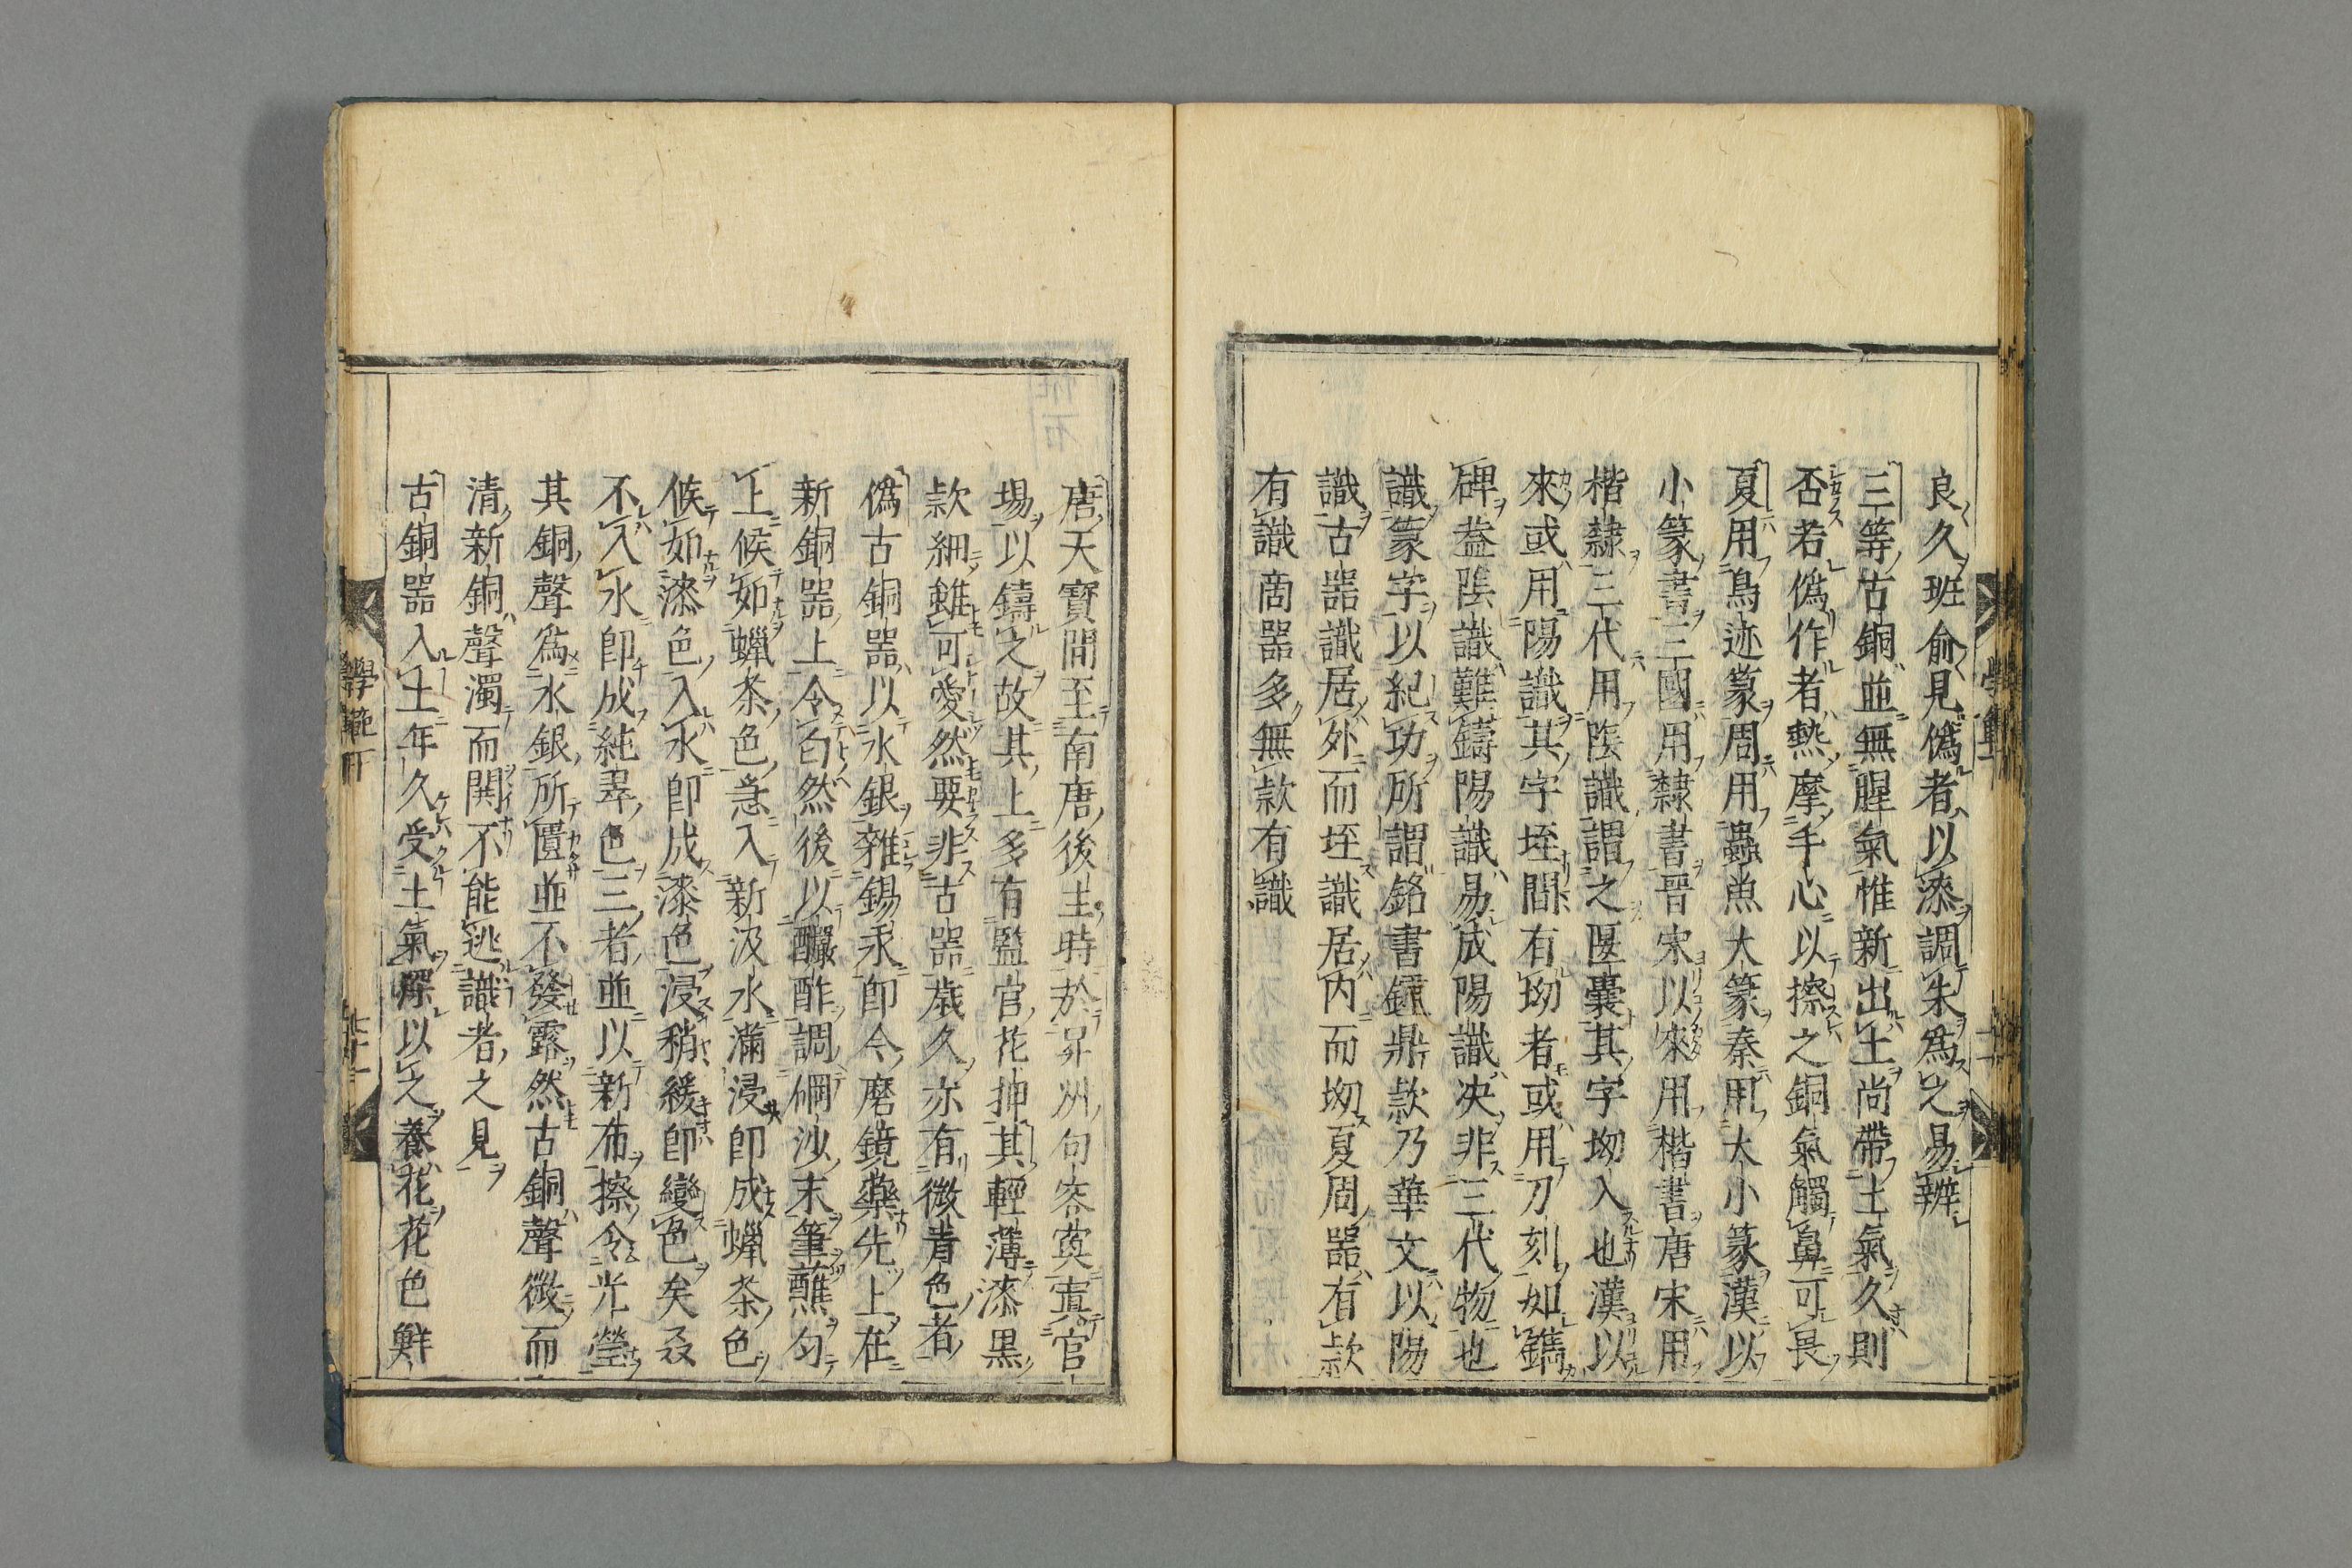 良久班俞見僞者以漆調朱爲之易辨
三等古銅並無腥氣惟新出土尚帶土氣久則
否若僞作者熱摩手心以擦之銅氣觸鼻可畏
夏用鳥迹篆周用蟲魚大篆秦用大小篆漢以
小篆書三國用隸書晉宋以來用楷書唐宋用
楷隸三代用陰識謂之偃囊其字坳入也漢以
來或用陽識其字垤間有坳者或用刀刻如鐫
碑蓋陰識難鑄陽識易成陽識决非三代物也
識篆字以紀功所謂銘書鐘鼎款乃華文以陽
識古器識居外而垤識居內而坳夏周器有款
有識商器多無款有識
唐天寶間至南唐後主時於昇州句容縣置官
場以鑄之故其上多有監官花押其輕薄漆黑
款細雖可愛然要非古器歲久亦有微青色者
僞古銅器以水銀雜錫汞卽今磨鏡藥先上在
新銅器上令勻然後以釅酢調碙沙末筆蘸勻
上候如蠟茶色急入新汲水滿浸卽成蠟茶色
候如漆色入水卽成漆色浸稍緩卽變色矣若
不入水卽成純翠色三者並以新布擦令光瑩
其銅聲爲水銀所匱並不發露然古銅聲微而
清新銅聲濁而鬨不能逃識者之見
古銅器入土年久受土氣深以之養花花色鮮
學範下